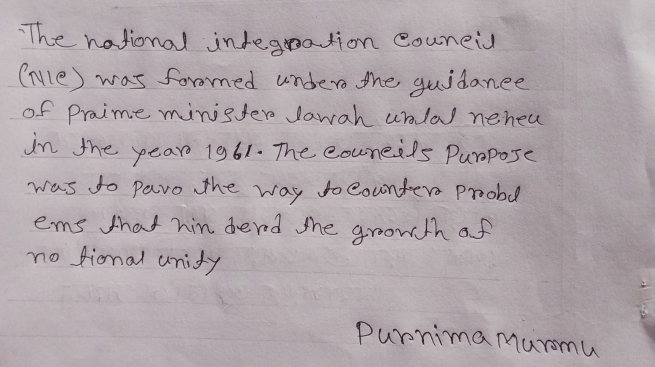 The national integration Council
(NIC) was formed under the guidance
of Praime minister Jawah urlal neheu
in the year 1961. The councils Purpose
was to pavo the way to counter Probl
ems that hin derd the growth of
no tional unity
Purnima Murmu